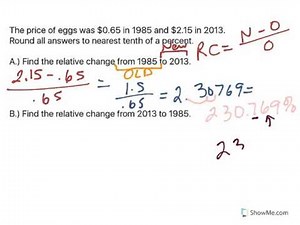 The price of eggs was $0.65 in 1985 and $2.15 in 2013.
Round all answers to nearest tenth of a percent.
New RC = N - O / O
A.) Find the relative change from 1985 to 2013.
OLD
2.15 - .65 / .65 = 1.5 / .65 = 2.30769 =
230.769%
B.) Find the relative change from 2013 to 1985.
23
ShowMe.com